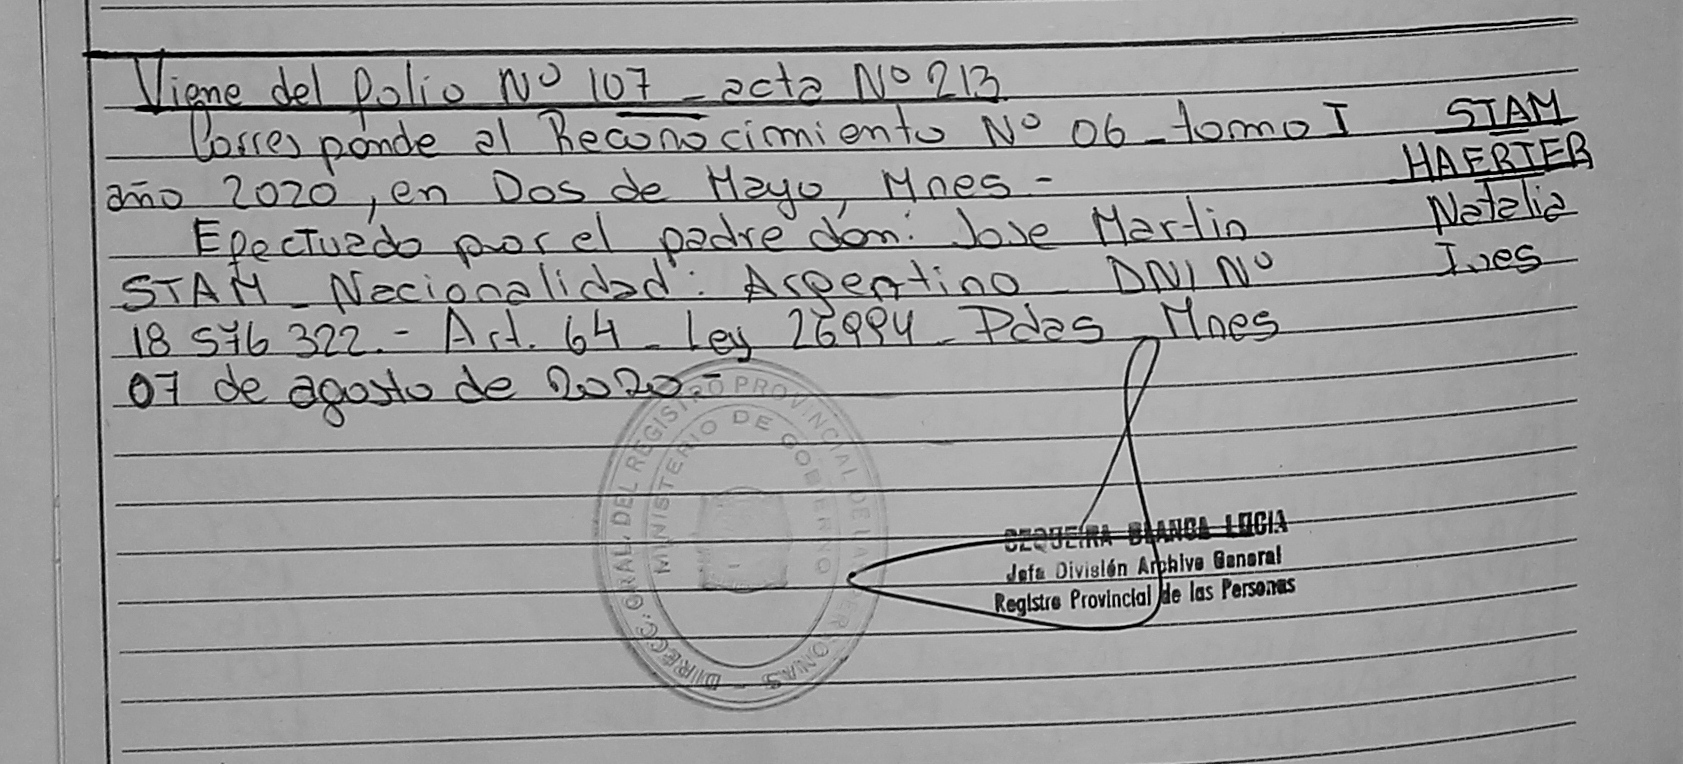 Viene del folio Nº 107 - acta Nº 213
Corresponde al Reconocimiento Nº 06 - tomo I
año 2020, en Dos de Mayo, Mnes -
Efectuado por el padre don: Jose Martin
STAM - Nacionalidad: Argentino - DNI Nº
18 576 322.- Art. 64 - Ley 26994 - Pdas Mnes
07 de agosto de 2020 -
STAM
HAERTER
Natalia
Ines
DIRECC. GRAL. DEL REGISTRO PROVINCIAL DE LAS PERSONAS -
MINISTERIO DE GOBIERNO
SEQUEIRA BLANCA LUCIA
Jefa División Archivo General
Registro Provincial de las Personas